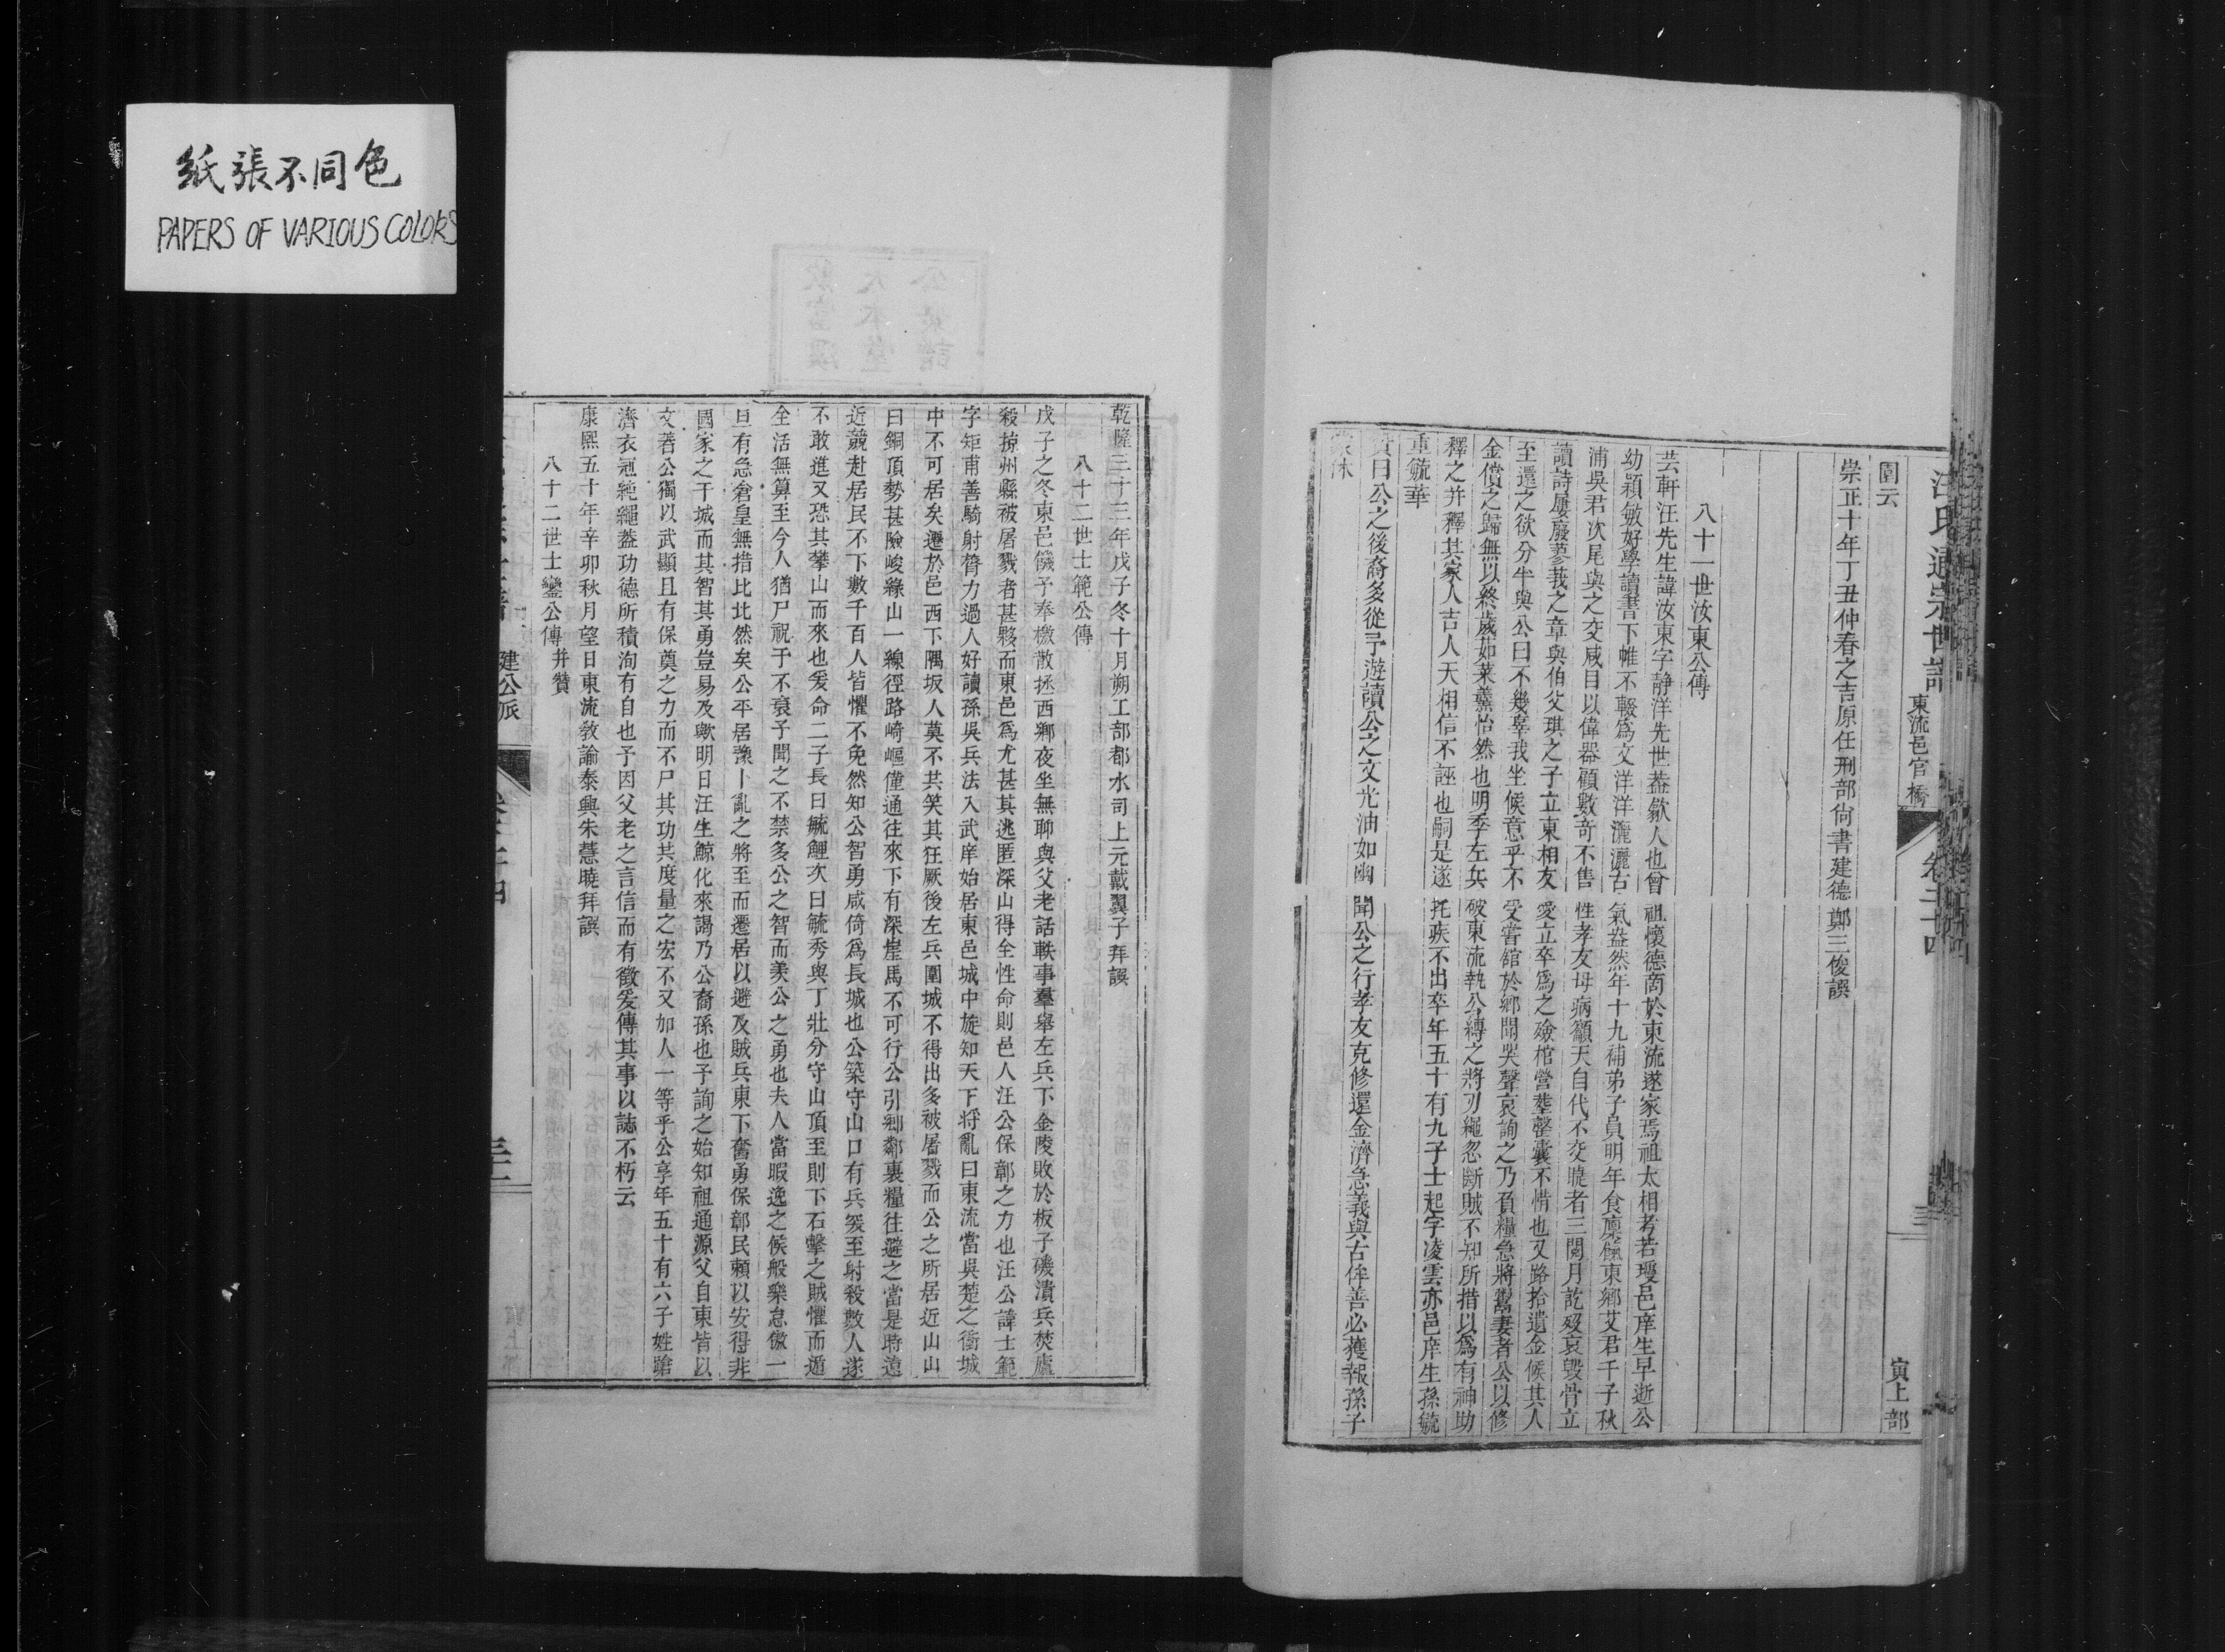 紙張不同色
PAPERS OF VARIOUS COLORS
汪氏通宗世譜 東流邑官橋 卷三十四 寅上部
圍云
崇正十年丁丑仲春之吉原任刑部尙書建德鄭三俊譔
八十一世汝東公傳
芸軒汪先生諱汝東字静洋先世葢歙人也曾祖懷德商於東流遂家焉祖太相考若璦邑庠生早逝公
幼穎敏好學讀書下帷不輟爲文洋洋灑灑古氣盎然年十九補弟子員明年食廪餼東鄉艾君千子秋
浦吳君次尾與之交咸目以偉器顧數奇不售性孝友母病籲天自代不交睫者三閱月訖歿哀毀骨立
讀詩屢廢蓼莪之章與伯父琪之子立東相友愛立卒爲之殮棺營塟罄囊不惜也又路拾遺金候其人
至還之欲分半與公曰不幾辜我坐候意乎不受嘗舘於鄉聞哭聲哀詢之乃負糧急將鬻妻者公以修
金償之歸無以終歲茹菜羹怡然也明季左兵破東流執公縳之將刃繩忽斷賊不知所措以爲有神助
釋之并釋其家人吉人天相信不誣也嗣是遂托疾不出卒年五十有九子士起字凌雲亦邑庠生孫毓
重毓華
贊曰公之後裔多從予遊讀公之文光油如幽聞公之行孝友克修還金濟急義與古侔善必獲報孫子
乾隆三十三年戊子冬十月朔工部都水司上元戴翼子拜譔
八十二世士範公傳
戊子之冬東邑饑予奉檄散拯西鄉夜坐無聊與父老話軼事羣舉左兵下金陵敗於板子磯潰兵焚廬
殺掠州縣被屠戮者甚夥而東邑爲尤甚其逃匿深山得全性命則邑人汪公保鄣之力也汪公諱士範
字矩甫善騎射膂力過人好讀孫吳兵法入武庠始居東邑城中旋知天下将亂曰東流當吳楚之衝城
中不可居矣遷於邑西下隅坂人莫不共笑其狂厥後左兵圍城不得出多被屠戮而公之所居近山山
曰銅頂勢甚險峻綠山一線徑路崎嶇僅通往來下有深崖馬不可行公引鄉鄰裏糧往避之當是時遠
近競赴居民不下數千百人皆懼不免然知公智勇咸倚爲長城也公築守山口有兵猝至射殺數人遂
不敢進又恐其攀山而來也爰命二子長曰毓鯉次曰毓秀與丁壯分守山頂至則下石擊之賊懼而遁
全活無算至今人猶尸祝于不衰予聞之不禁多公之智而羨公之勇也夫人當暇逸之候般樂怠傲一
旦有急倉皇無措比比然矣公平居豫卜亂之將至而遷居以避及賊兵東下奮勇保鄣民賴以安得非
國家之干城而其智其勇豈易及歟明日汪生鯨化來謁乃公裔孫也予詢之始知祖通源父自東皆以
文著公獨以武顯且有保奠之力而不尸其功其度量之宏不又加人一等乎公享年五十有六子姓蹌
濟衣冠純繩葢功德所積洵有自也予因父老之言信而有徵爰傳其事以誌不朽云
康熙五十年辛卯秋月望日東流敎諭泰興朱慧曉拜譔
八十二世士鑾公傳 并贊
建公派